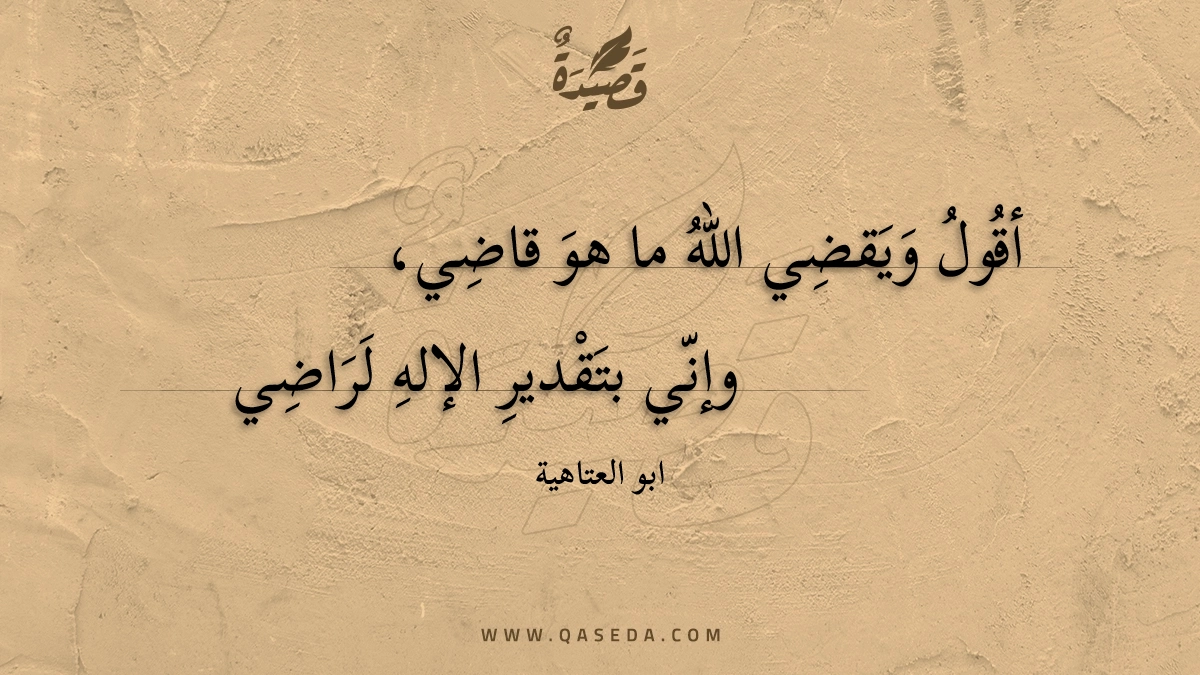 قَصِيدَةٌ
أقُولُ وَيَقضِي اللّٰهُ ما هوَ قاضِي،
وإنّي بتَقْديرِ الإلهِ لَرَاضِي
ابو العتاهية
WWW.QASEDA.COM